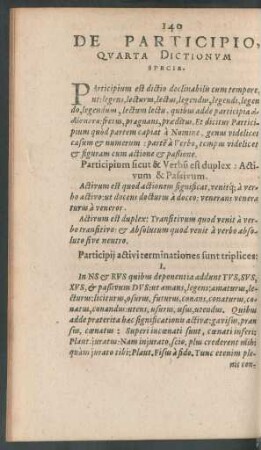 140
DE PARTICIPIO,
QVARTA DICTIONVM
SPECIE.
PArticipium est dictio declinabilis cum tempore,
ut: legens, lecturus, lectus, legendus, legendi, legen
do, legendum, lectum lectu. quibus adde participia a-
dictionis: fretus, pragnans, praeditus. Et dicitur Partici-
pium quòd partem capiat à Nomine, genus videlicet
casum & numerum: parté à Verbo, tempus videlicet
& figuram cum actione & passione.
Participium sicut & Verbũ est duplex: Acti-
vum & Passivum.
Activum est quod actionem significat, venitq; à ver-
bo activo: ut docens docturus à doceo: venerans venera
turus à veneror.
Activum est duplex: Transitivum quod venit à ver-
bo transitivo: & Absolutum quod venit à verbo abso-
luto sive neutro.
Participij activi terminationes sunt triplices:
I.
In NS & RVS quibus deponentia addunt TVS, SVS,
XVS, & passivum DVS: ut amans, legens; amaturus, le-
cturus: liciturus, osurus, futurus, conans, conaturus, co-
natus, conandus: utens, usurus, usus, utendus. Quibus
adde praeterita haec significationis activae: gavisus, pran-
sus, cœnatus: Superi incœnati sunt, cœnati inferi;
Plant. juratus: Nam injurato, scio, plus crederet mihi
quàm jurato tibi; Plaut. Fisus à fido. Tunc etenim ple-
nis con-